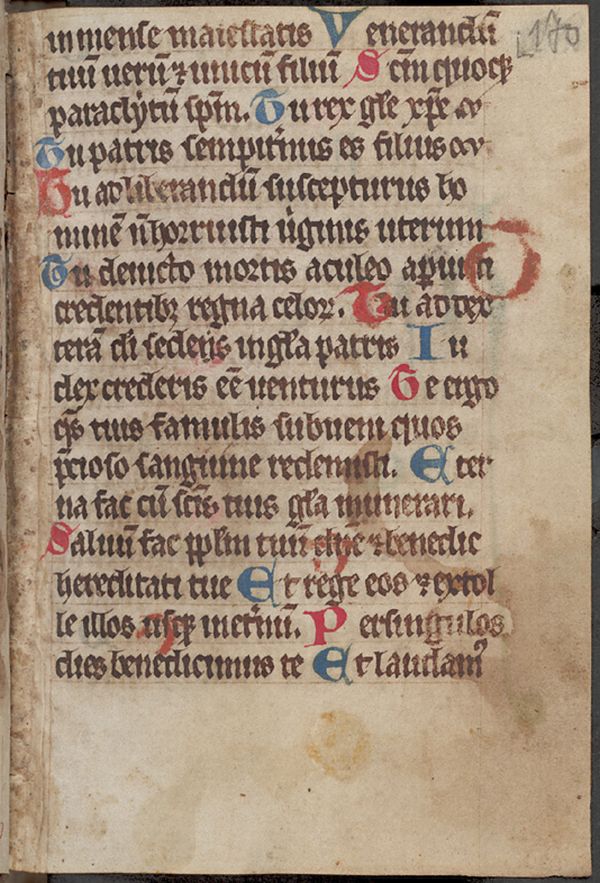 inmense maiestatis Venerandū
tuū uerū ⁊ unicū filiū Scm̄ quoqꝫ
paraclytū spm̄. Tu rex gle xpē
Tu patris sempit'nus es filius
Tu ad liberandū suscepturus ho
minē n̄ horruisti u'ginis uterum
Tu deuicto mortis aculeo ap̄uisti
credentibꝫ regna celoꝝ. Tu ad dex
terā di sedens in gla patris Iu
dex crederis eē uenturus Te ergo
qs̄ tuis famulis subueni quos
p̄cioso sanguine redemisti. Eter
na fac cū scīs tuis gla munerari.
Saluū fac pplm tuū dn̄e ⁊ benedic
hereditati tue Et rege eos ⁊ extol
le illos usqꝫ inet'nū. Per singulos
dies benedicimus te Et laudamꝰ
170